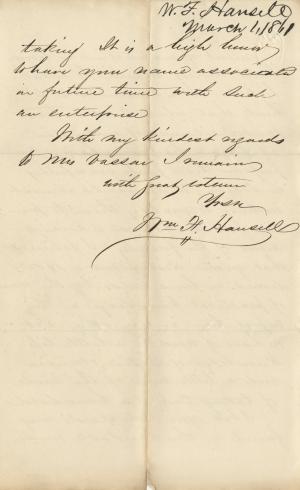 W. F. Hansell
March 1, 1861
taking It is a high honor
to have your name associated
in future time with such
an enterprise
With my kindest regards
to Mrs Vassar I remain
with great esteem
Yours
Wm F. Hansell